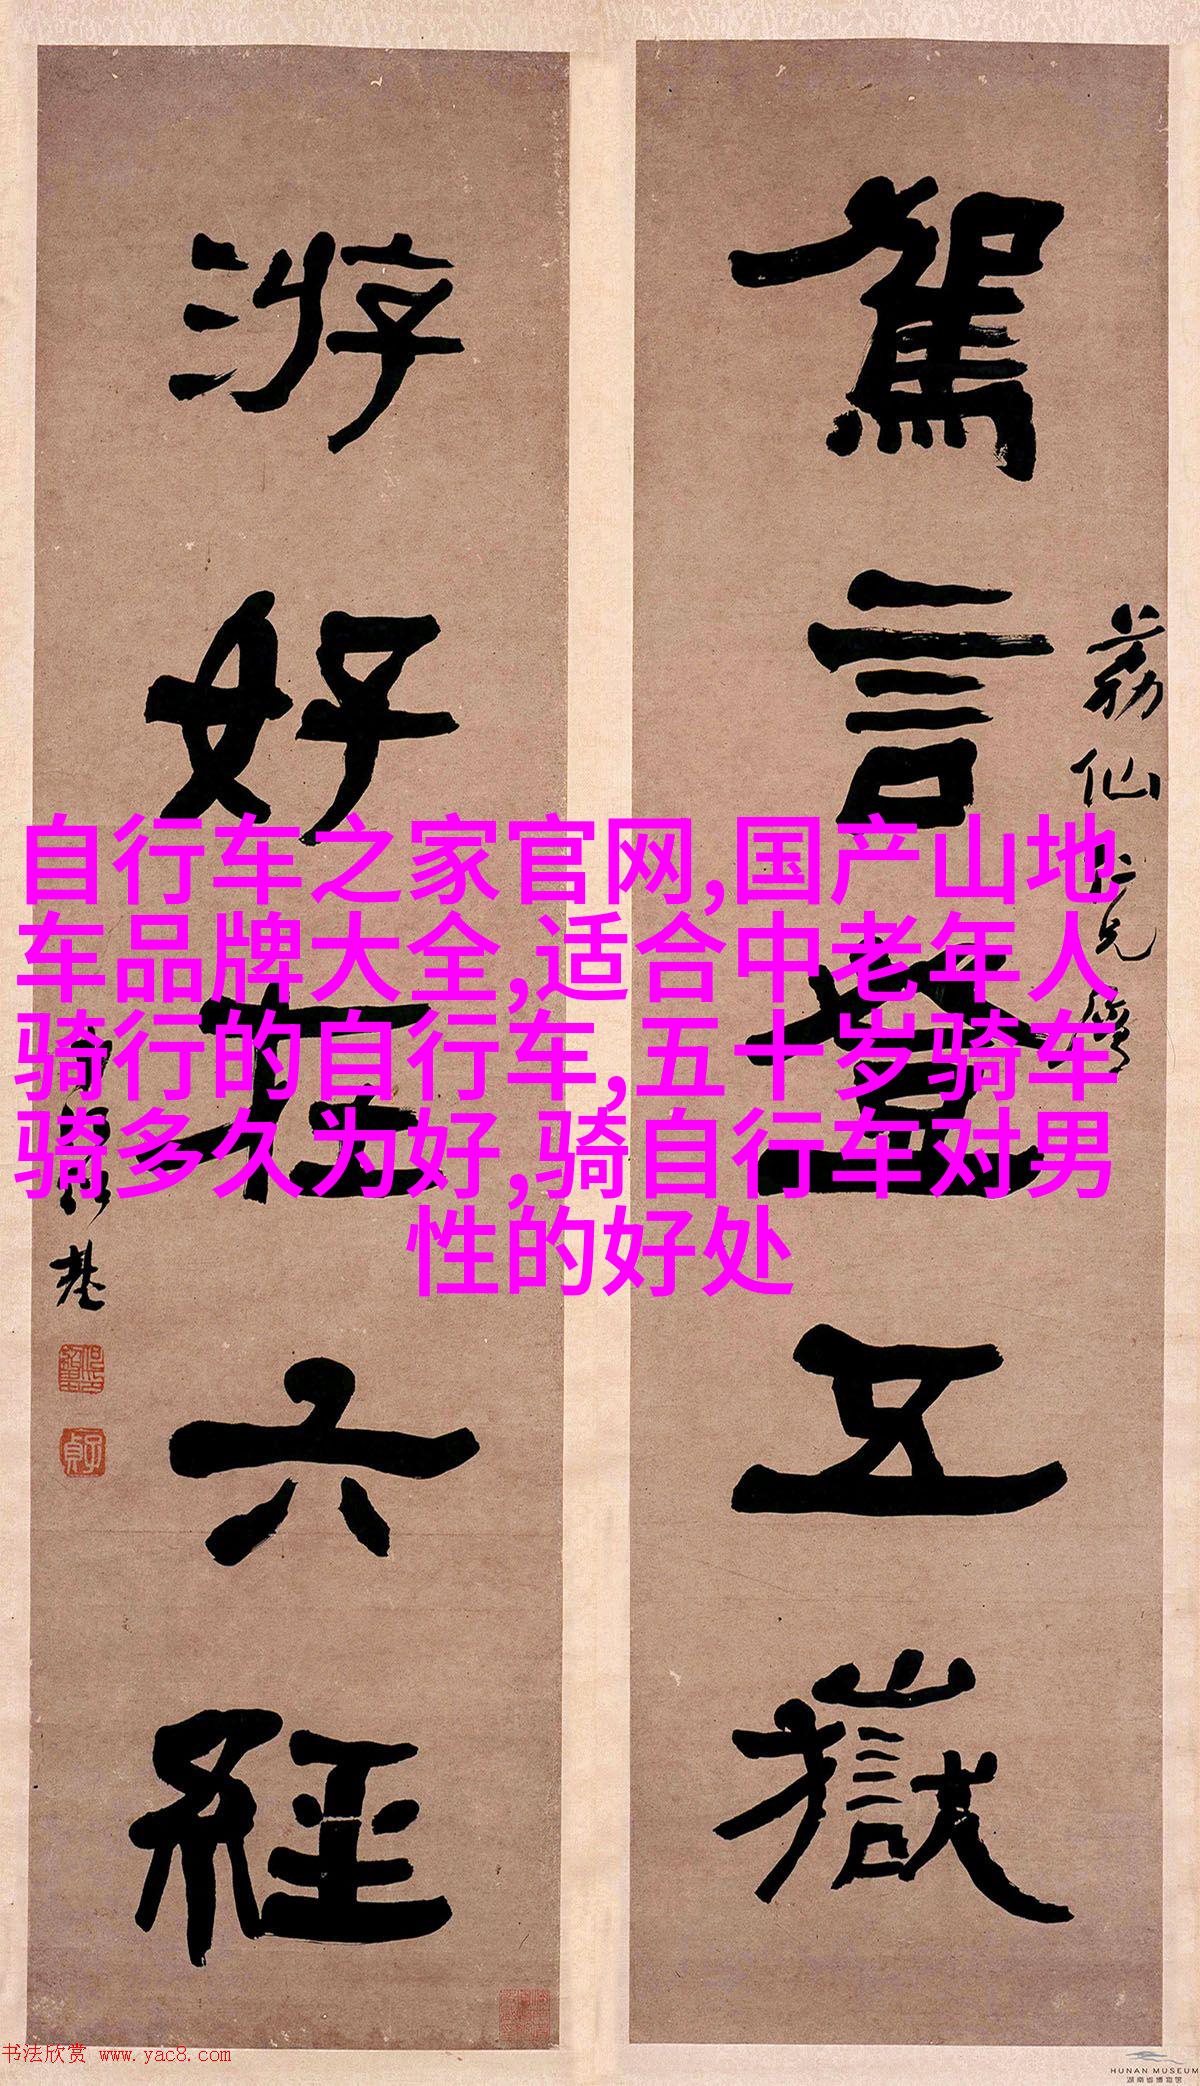 駕言登五嶽
荔仙仁兄
游好在六經
自行车之家官网,国产山地
车品牌大全,适合中老年人
骑行的自行车,五十岁骑车
骑多久为好,骑自行车对男
性的好处
书法欣赏 www.yac8.com
HUNAN MUSEUM
湖南省博物馆